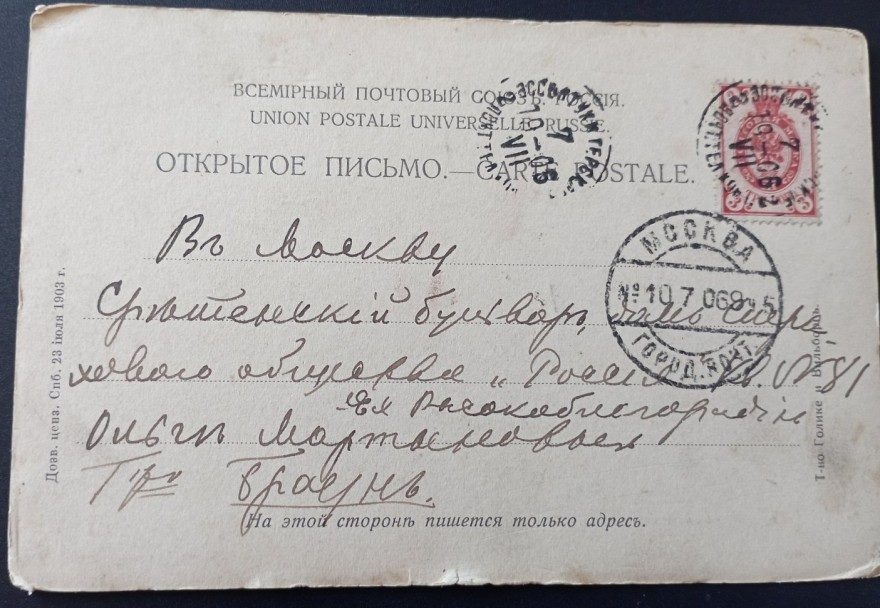 ВСЕМІРНЫЙ ПОЧТОВЫЙ СОЮЗЪ. РОССІЯ.
UNION POSTALE UNIVERSELLE. RUSSIE.
ОТКРЫТОЕ ПИСЬМО.—CARTE POSTALE.
7
VII
МОСКВА
№ 10 7 06 9ч 5
ГОРОД. ПОЧТ.
Въ Москву
Срѣтенскій бульваръ, домъ Стра
хового общества „Россія" кв. №81
Ея Высокоблагородію
Ольгѣ Мартыновнѣ
Г-жѣ Браунъ.
На этой сторонѣ пишется только адресъ.
Дозв. ценз. Спб. 23 іюля 1903 г.
Т-во Голике и Вильборгъ.